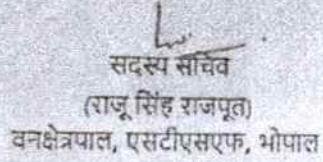 सदस्य सचिव
(राजू सिंह राजपूत)
वनक्षेत्रपाल, एसटीएसएफ, भोपाल